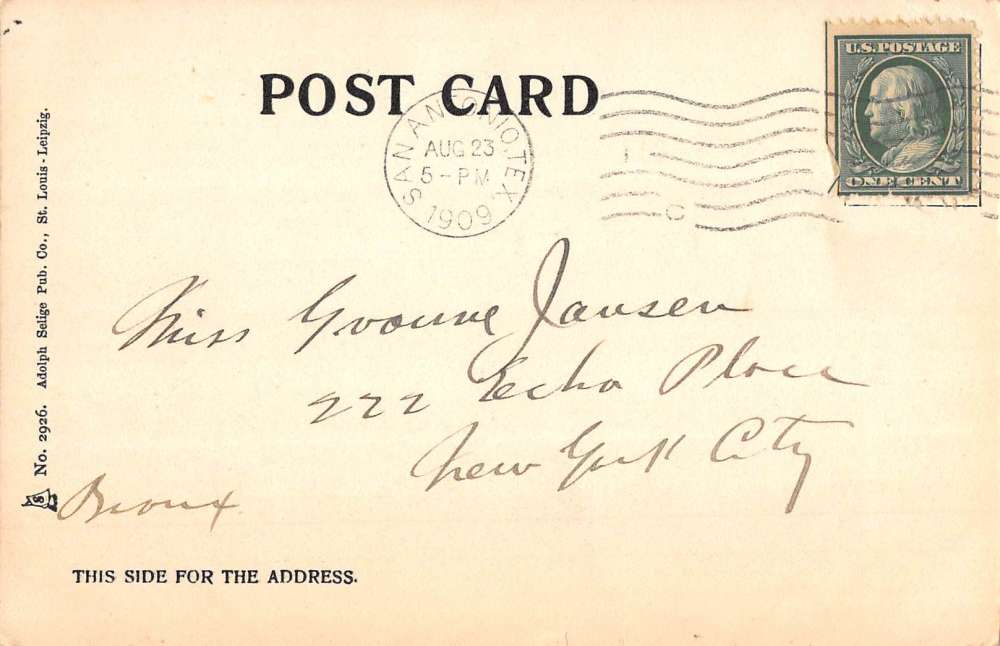 POST CARD
U.S. POSTAGE
ONE CENT
SAN ANTONIO, TEX.
AUG 23
5-PM
1909
Miss Yvonne Jansen
222 Echo Place
New York City
Bronx
No. 2926. Adolph Selige Pub. Co., St. Louis-Leipzig.
THIS SIDE FOR THE ADDRESS.